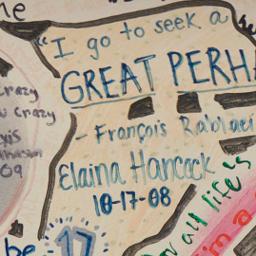 "I go to seek a
GREAT PERHA
- François Rablai
Elaina Hancock
10-17-08
crazy
crazy
09
be
17
for all life's
in a